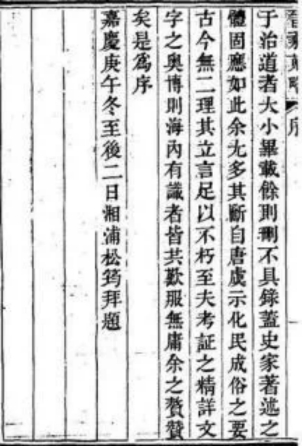 于治道者大小畢載餘則刪不具錄蓋史家著述之
體固應如此余尢多其斷自唐虞示化民成俗之要
古今無二理其立言足以不朽至夫考証之精詳文
字之奥博則海內有識者皆共歎服無庸余之贅贊
矣是為序
嘉慶庚午冬至後二日湘浦松筠拜題